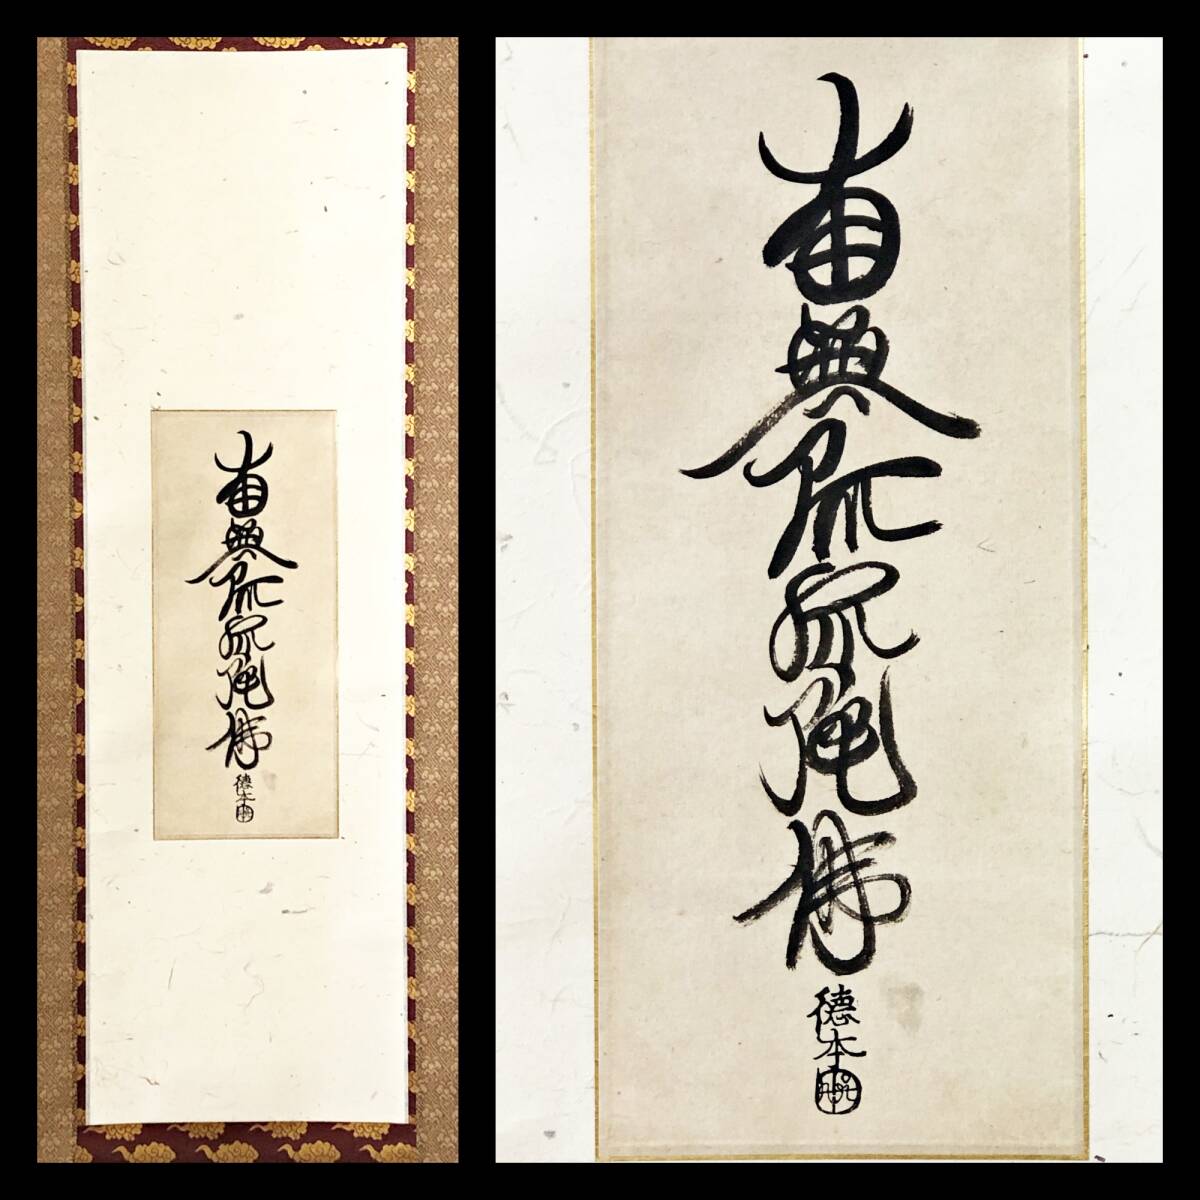 南無阿弥陀佛
徳本
南無阿弥陀佛
徳本